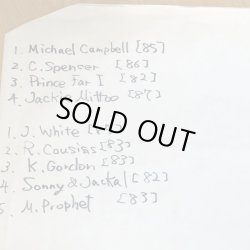 1. Michael Campbell [85]
2. C. Spencer [86]
3. Prince Far I [82]
4. Jackie Mittoo [87]
SOLD OUT
1. J. White
2. R. Cousins [83]
3. K. Gordon [83]
4. Sonny & Jackal [82]
5. M. Prophet [83]